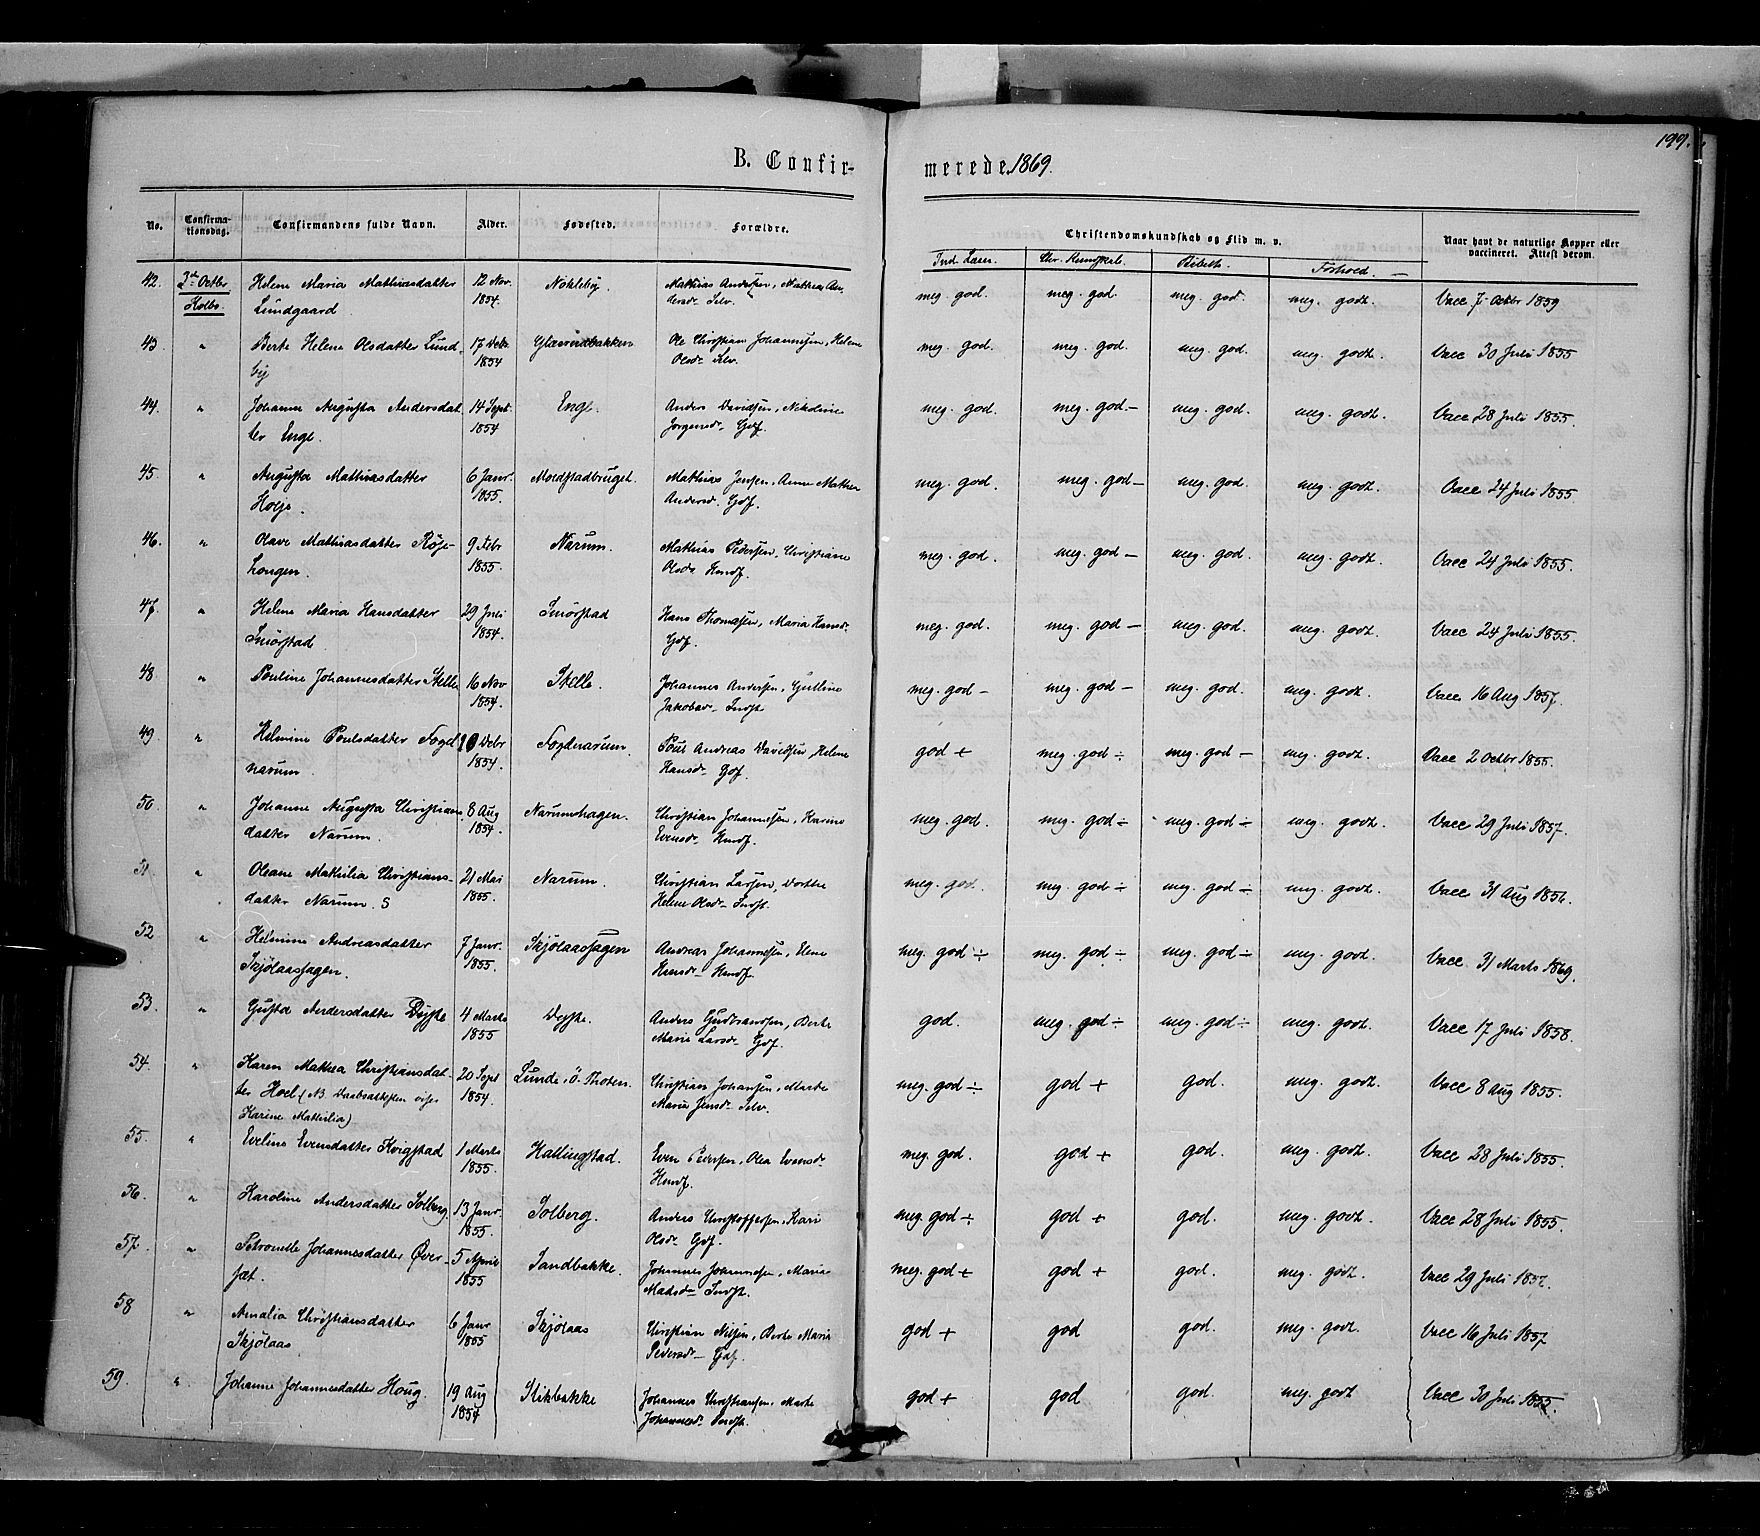 199.
B. Confir-
merede 1869.
No.
Confirma-
tionsdag.
Confirmandens fulde Navn.
Alder.
Fødested.
Forældre.
Christendomskundskab og Flid m. v.
Naar havt de naturlige Kopper eller
vaccineret. Attest derom.
Chr. Kundskab.
Forhold.
42. 3de Octbr Helene Maria Mathiasdatter 12 Nov. Nøkleby. Mathias Andersen, Mathea An- meg. god. meg. god. meg. god. meg. godt. Vacc 7 Octbr 1859
Kolbo Lundgaard 1854. dersdr Selv.
43. " Berte Helene Olsdatter Lund- 17 Debr. Ole Christian Johannesen, Helene meg. god. meg. god. meg. god. meg. godt. Vacc 30 Juli 1855
by 1854 Olsdr Selv.
44. " Johanne Augusta Andersdat- 14 Sept. Enge. Anders Davidsen, Nikoline meg. god. meg. god.- meg. god. meg. godt. Vacc 28 Juli 1855.
ter Enge. 1854 Jørgensdr Gdf.
45. " Augusta Mathiasdatter 6 Janr. Mathias Jensen, Anne Mathea meg. god. meg. god- meg. god. meg. godt. Vacc 24 Juli 1855
1855. Andersd. Gdf.
46. " Olave Mathiasdatter 9 Febr Narum. Mathias Pedersen, Christiane meg. god. meg. god - meg. god. meg. godt. Vacc 24 Juli 1855.
1855. Olsdr Husmf.
47. " Helene Maria Hansdatter 29 Juli Smørstad Hans Thomasen, Maria Hansdr meg. god. meg. god - meg. god. meg. godt. Vacc 24 Juli 1855.
Smørstad 1854. Gdf.
48. " Pouline Johannesdatter Skelle 16 Nov Skelle. Johannes Andersen, meg. god - meg. god - meg. god. meg. godt. Vacc 16 Aug 1857.
1854. Jakobsdr Indst.
49. " Helmine Poulsdatter Fogd- 10 Debr Fogdnarum. Poul Andreas Davidsen, Helene god + meg. god ÷ meg. god - meg. godt. Vacc 2 Octbr 1855.
narum. 1854. Hansdr Gdf.
50. " Johanne Augusta Christians- 8 Aug Narumhagen. Christian Johannesen, Karine meg. god. meg. god ÷ meg. god ÷ meg. godt. Vacc 29 Juli 1857.
datter Narum. 1854. Evensdr Husmf.
51. " Oleane Mathilia Christians- 21 Mai Narum. Christian Larsen, Dorthe meg. god. meg. god ÷ meg. god ÷ meg. godt. Vacc 31 Aug 1856.
datter Narum. S 1855. Helene Olsdr Indst.
52 " Helmine Andreasdatter 7 Janr. Skjølaassagen Andreas Johannesen, Elene meg. god ÷ meg. god ÷ meg. god ÷ meg. godt. Vacc 31 Marts 1869.
Skjølaassagen. 1855. Husmf.
53. " Gusta Andersdatter Dyste 4 Marts Dyste. Anders Gudbrandsen, Berte god. meg. god ÷ meg. god ÷ meg. godt. Vacc 17 Juli 1858.
1855 Marie Larsdr Gdf.
54. " Karen Mathea Christiansdat- 20 Sept Lunde, Ø. Thoten. Christian Johansen, Marte meg. god ÷ god + god. meg. godt. Vacc 8 Aug 1855.
ter Hoel (NB. Daabsattesten viser 1854. Marie Jensdr Selv.
Karine Mathilia)
55. " Eveline Evensdatter Kvigstad 1 Marts Hallingstad. Even Pedersen, Olea Evensdr meg. god. god + god. meg. godt. Vacc 28 Juli 1855.
1855. Husmf.
56. " Karoline Andersdatter Solberg. 13 Janr. Solberg. Anders Christoffersen, Kari meg. god ÷ god + god. meg. godt. Vacc 28 Juli 1855.
1855. Olsdr Gdf.
57. " Petronelle Johannesdatter Øver- 5 April Sandbakke. Johannes Johannesen, Maria meg. god + god + god. meg. godt. Vacc 29 Juli 1857.
sæt. 1855 Madsdr Indst.
58 " Amalia Christiansdatter 6 Janr Skjølaas Christian Nilsen, Berte Maria god + god god. meg. godt. Vacc 16 Juli 1857
Skjølaas 1855 Pedersdr Gdf.
59. " Johanne Johannesdatter Houg. 19 Aug Stikbakke Johannes Christiansen, Marte god + god god. meg. godt Vacc 30 Juli 1855.
1854 Johannesdr Indst.